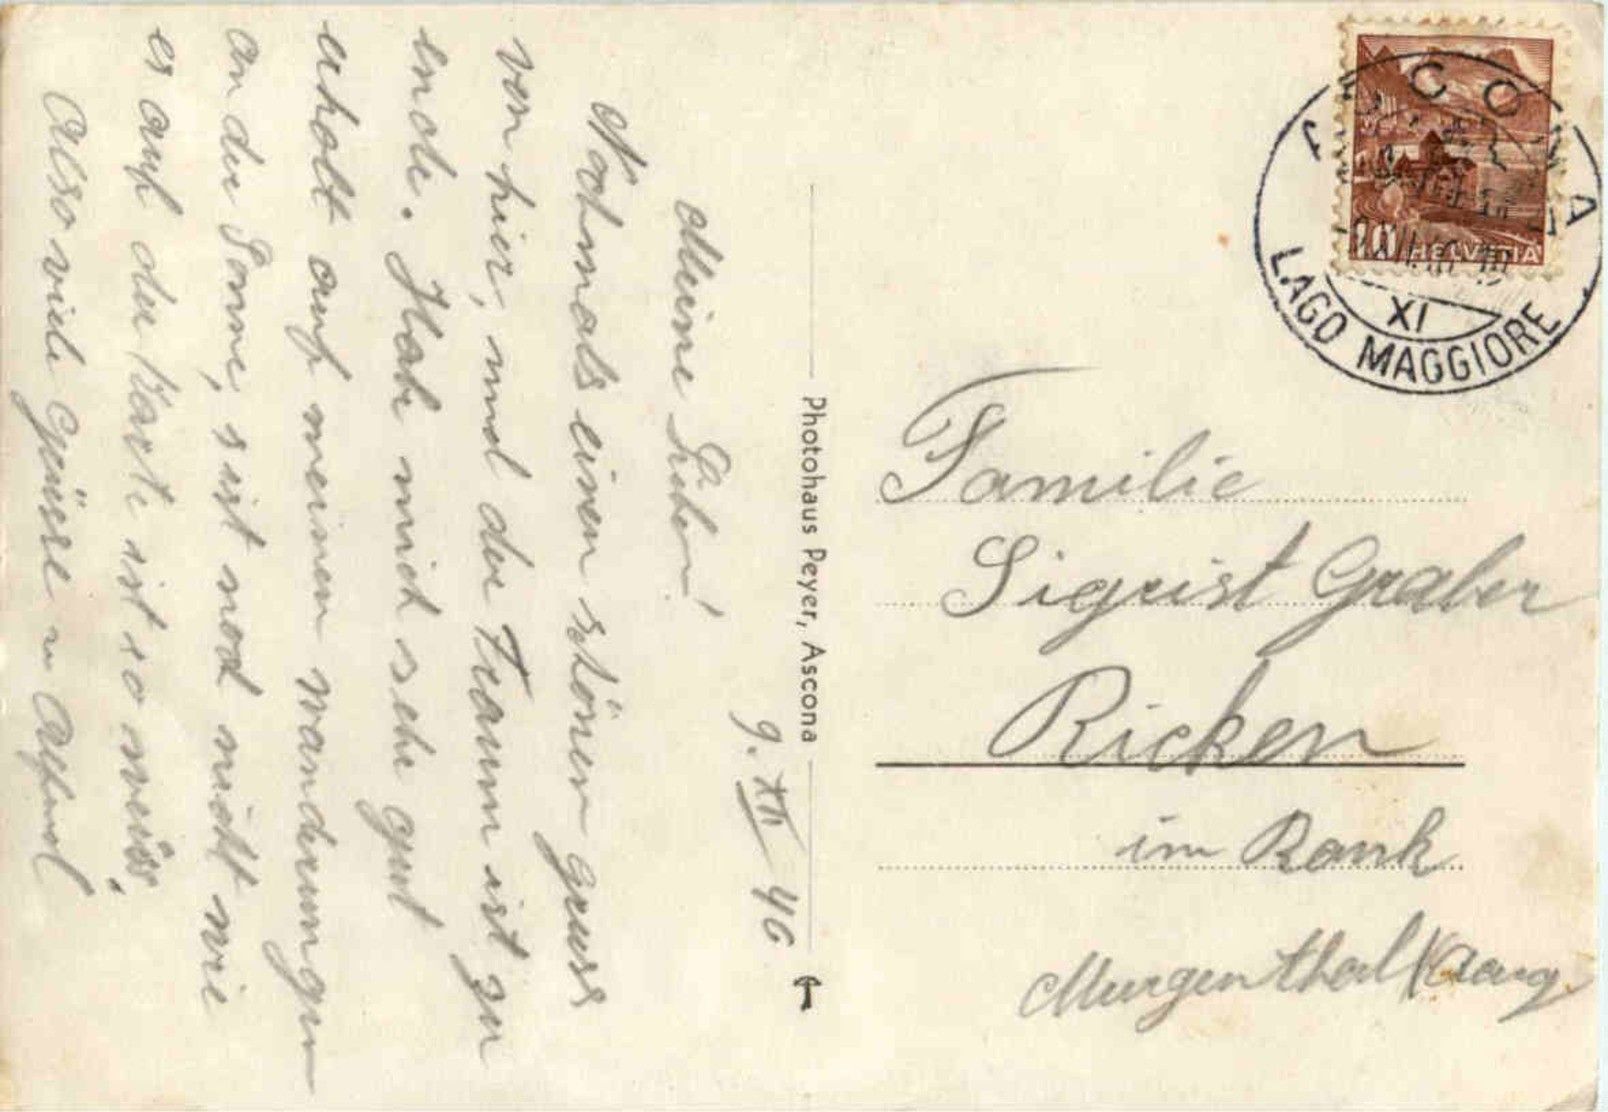 9. XII 46
Meine Lieben!
Nochmals einen schönen gruss
von hier, und der Traum ist zu
ende. Habe mich sehr gut
erholt auf meinen wanderungen
an der Sonne, s ist nood nicht wie
er auf der Karte ist so weiss,
Also viele Grüsse u
Photohaus Peyer, Ascona
ASCONA
LAGO MAGGIORE
XI
10 HELVETIA
Familie
Sigrist Graber
Ricken
im Rank
Murgenthal (Aarg